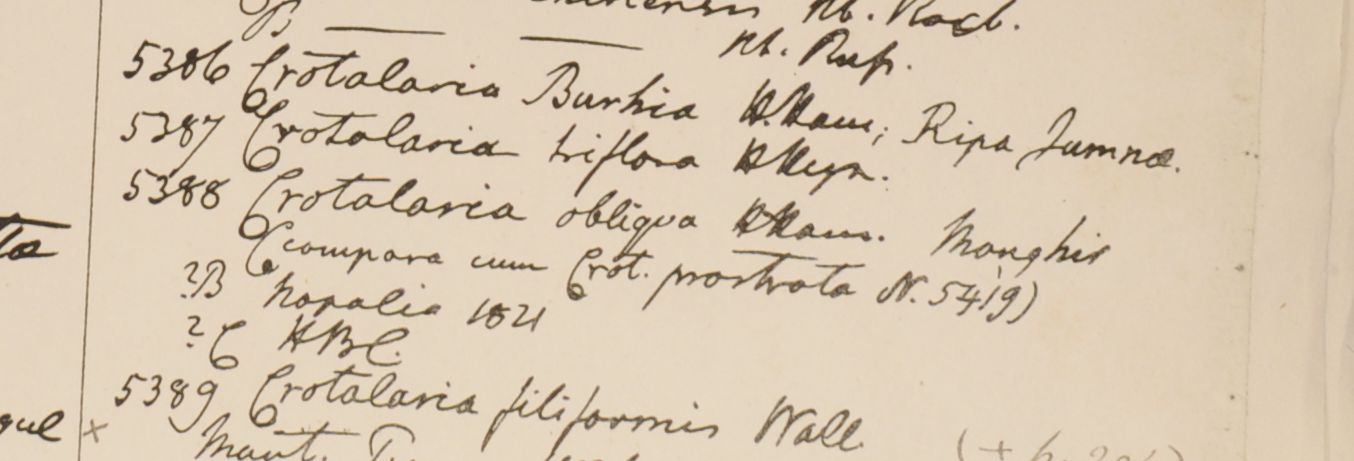 Hb. Roxb.
B — — Hb. Rufs.
5386 Crotalaria Burhia H.Ham; Ripa Jumnæ.
5387 Crotalaria triflora HHeyn.
5388 Crotalaria obliqua HHam. Monghir
(compara cum Crot. prostrata N. 5419)
?B Napalia 1821
?C HBC.
5389 Crotalaria filiformis Wall.
Mont.